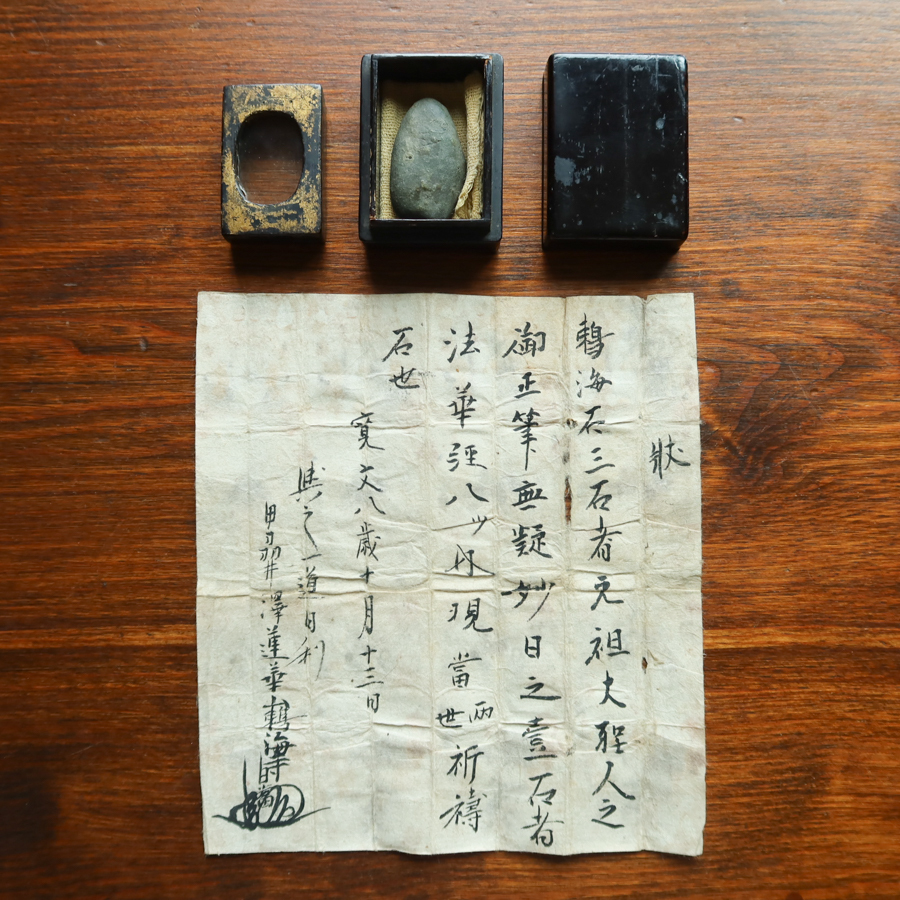 狀
鵜海石三石者元祖大聖人之
御正筆無疑妙日之壹石者
法華経八廿月現當両世祈禱
石也
寛文八歳十月十三日
與之一道日利
甲刕井澤蓮華鵜海寺